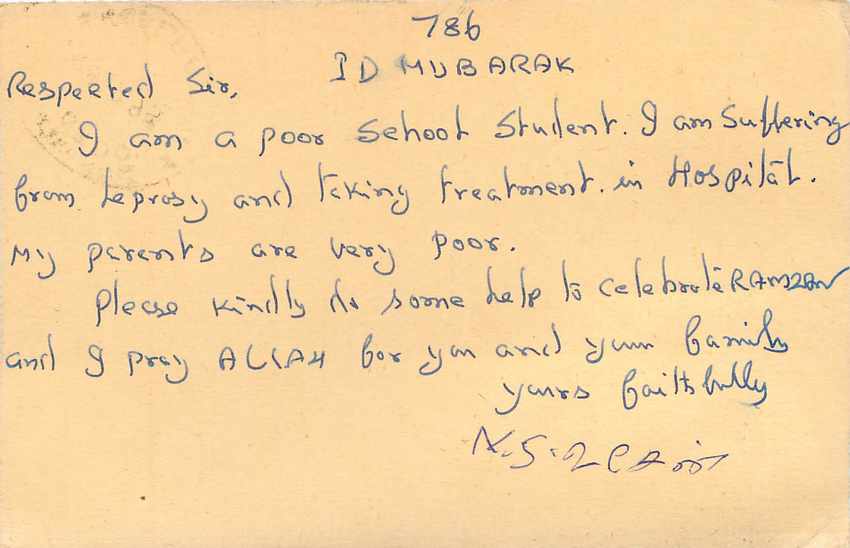 786
ID MUBARAK
Respected Sir,
I am a poor School Student. I am Suffering
from leprosy and taking treatment. in Hospital.
My parents are very poor.
Please kindly do some help to celebrate RAMZAN
and I pray ALLAH for you and your family
yours faithfully
N.S.